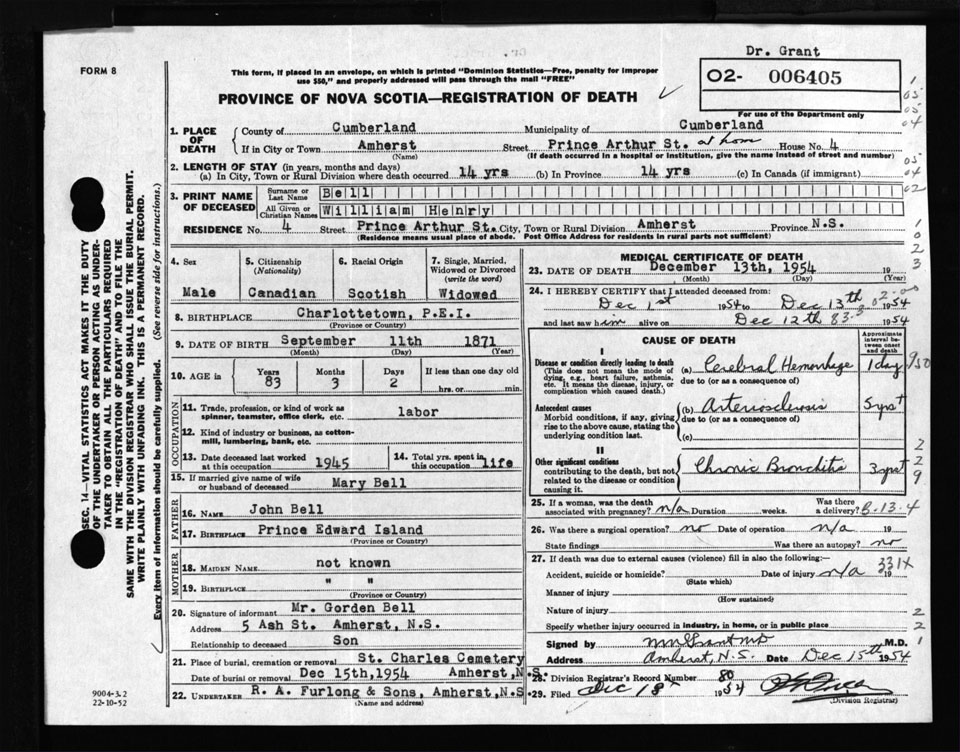 Dr. Grant
FORM 8
This form, if placed in an envelope, on which is printed "Dominion Statistics—Free, penalty for improper
use $50," and properly addressed will pass through the mail "FREE"
O2- 006405
For use of the Department only
PROVINCE OF NOVA SCOTIA—REGISTRATION OF DEATH
1. PLACE OF DEATH
County of Cumberland Municipality of Cumberland
If in City or Town Amherst Street Prince Arthur St. at home House No. 4
(Name) (If death occurred in a hospital or institution, give the name instead of street and number)
2. LENGTH OF STAY (in years, months and days)
(a) In City, Town or Rural Division where death occurred 14 yrs (b) In Province 14 yrs (c) In Canada (if immigrant)
3. PRINT NAME OF DECEASED
Surname or Last Name Bell
All Given or Christian Names William Henry
RESIDENCE No. 4 Street Prince Arthur St. City, Town or Rural Division Amherst Province N.S.
(Residence means usual place of abode. Post Office Address for residents in rural parts not sufficient)
4. Sex
Male
5. Citizenship (Nationality)
Canadian
6. Racial Origin
Scotish
7. Single, Married, Widowed or Divorced (write the word)
Widowed
8. BIRTHPLACE Charlottetown, P.E.I.
(Province or Country)
9. DATE OF BIRTH September 11th 1871
(Month) (Day) (Year)
10. AGE in Years Months Days If less than one day old
83 3 2 hrs. or min.
OCCUPATION
11. Trade, profession, or kind of work as spinner, teamster, office clerk, etc. labor
12. Kind of industry or business, as cotton-mill, lumbering, bank, etc.
13. Date deceased last worked at this occupation 1945
14. Total yrs. spent in this occupation life
15. If married give name of wife or husband of deceased Mary Bell
FATHER
16. NAME John Bell
17. BIRTHPLACE Prince Edward Island
(Province or Country)
MOTHER
18. MAIDEN NAME not known
19. BIRTHPLACE " "
(Province or Country)
20. Signature of informant Mr. Gorden Bell
Address 5 Ash St. Amherst, N.S.
Relationship to deceased Son
21. Place of burial, cremation or removal St. Charles Cemetery
Date of burial or removal Dec 15th, 1954 Amherst, N.S.
22. UNDERTAKER R. A. Furlong & Sons, Amherst, N.S
(Name and address)
MEDICAL CERTIFICATE OF DEATH
23. DATE OF DEATH December 13th, 1954 19
(Month) (Day) (Year)
24. I HEREBY CERTIFY that I attended deceased from:
Dec 1st 1954 to Dec 13th 1954
and last saw him alive on Dec 12th 1954
83-3
02-00
CAUSE OF DEATH
Approximate interval between onset and death
I
Disease or condition directly leading to death
(This does not mean the mode of
dying, e.g., heart failure, asthenia,
etc. It means the disease, injury, or
complication which caused death.)
(a) Cerebral Hemorrhage 1 day
due to (or as a consequence of)
Antecedent causes
Morbid conditions, if any, giving
rise to the above cause, stating the
underlying condition last.
(b) Arteriosclerosis 5 yrs+
due to (or as a consequence of)
(c)
II
Other significant conditions
contributing to the death, but not
related to the disease or condition
causing it.
Chronic Bronchitis 3 yrs+
25. If a woman, was the death associated with pregnancy? n/a Duration weeks. Was there a delivery? B-13-4
26. Was there a surgical operation? no Date of operation n/a 19
State findings Was there an autopsy? no
27. If death was due to external causes (violence) fill in also the following:—
331X
Accident, suicide or homicide? Date of injury n/a 19
(State which)
Manner of injury
(How sustained)
Nature of injury
Specify whether injury occurred in industry, in home, or in public place
Signed by M.D.
Address Amherst, N.S. Date Dec 15th 1954
28. Division Registrar's Record Number 80
29. Filed Dec 18 1954
(Division Registrar)
SEC. 14—VITAL STATISTICS ACT MAKES IT THE DUTY
OF THE UNDERTAKER OR PERSON ACTING AS UNDER-
TAKER TO OBTAIN ALL THE PARTICULARS REQUIRED
IN THE "REGISTRATION OF DEATH" AND TO FILE THE
SAME WITH THE DIVISION REGISTRAR WHO SHALL ISSUE THE BURIAL PERMIT.
WRITE PLAINLY WITH UNFADING INK. THIS IS A PERMANENT RECORD.
Every item of information should be carefully supplied. (See reverse side for instructions.)
9004-3.2
22-10-52